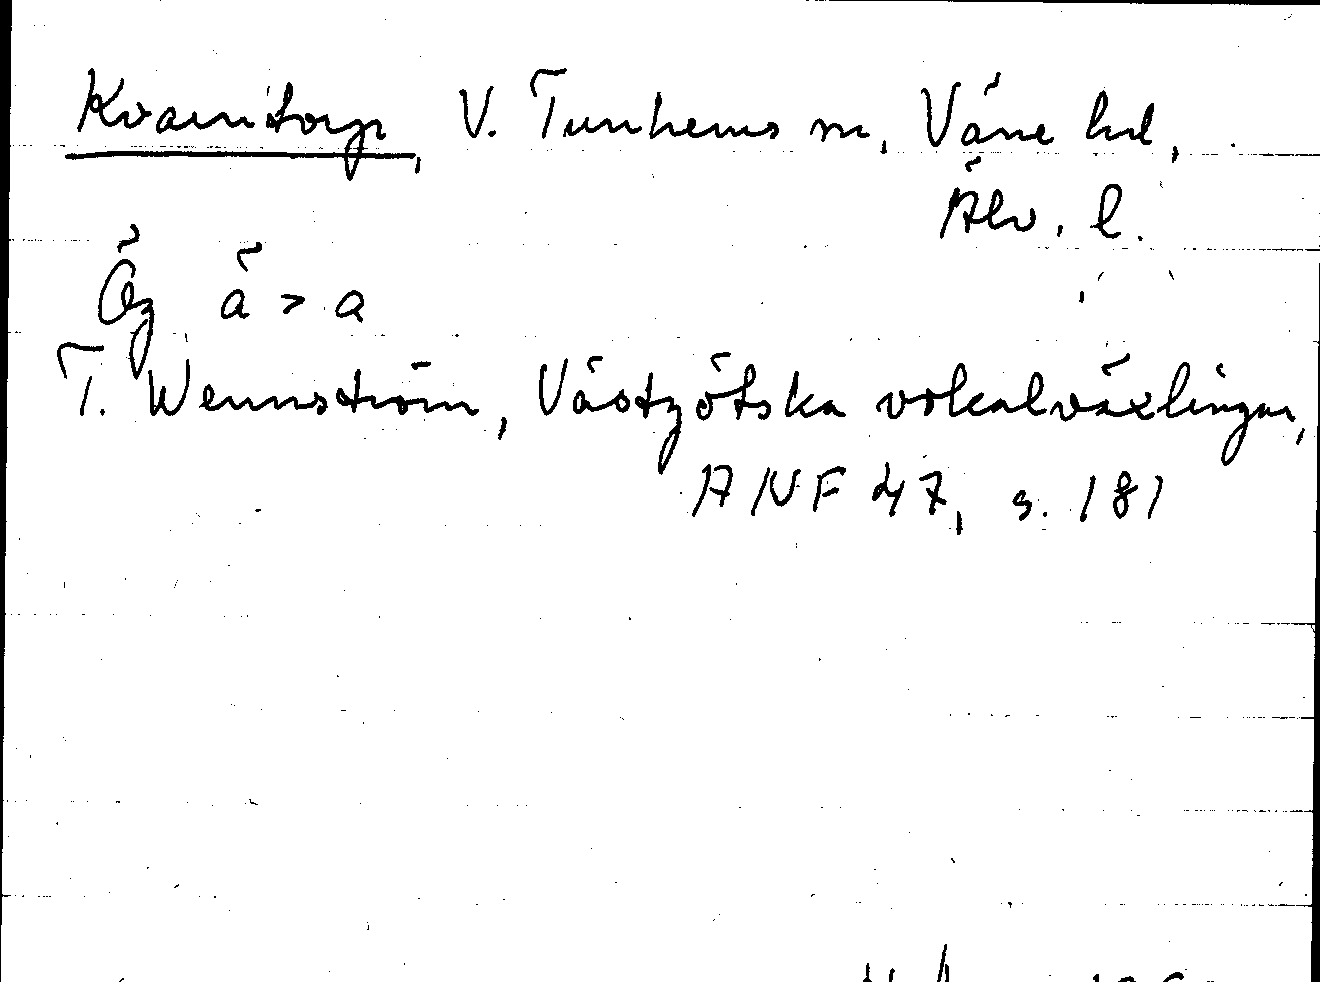 Kvarntorp, V. Tunhems sn, Väne hd,
Älv. l.
Övg ä > a
T. Wennström, Västgötska vokalväxlingar,
ANF 47, s. 181